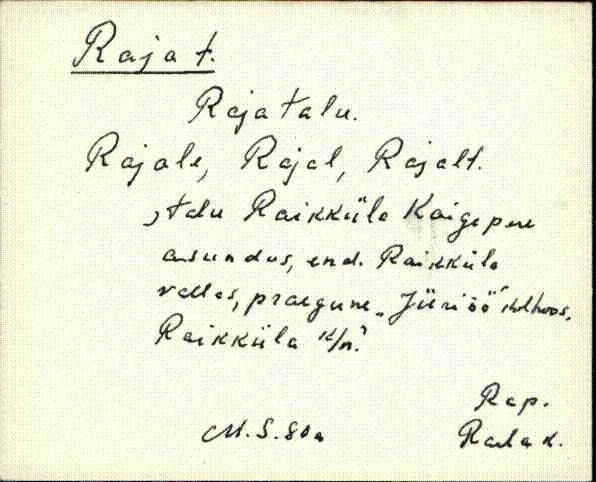 Raja t.
Raja talu.
Rajale, Rajal, Rajalt.
„talu Raikküla Kaigepere
asundus, end. Raikküla
vallas, praegune „Jüriöö" kolhoos,
Raikküla k/n."
Rap.
M.S.80a